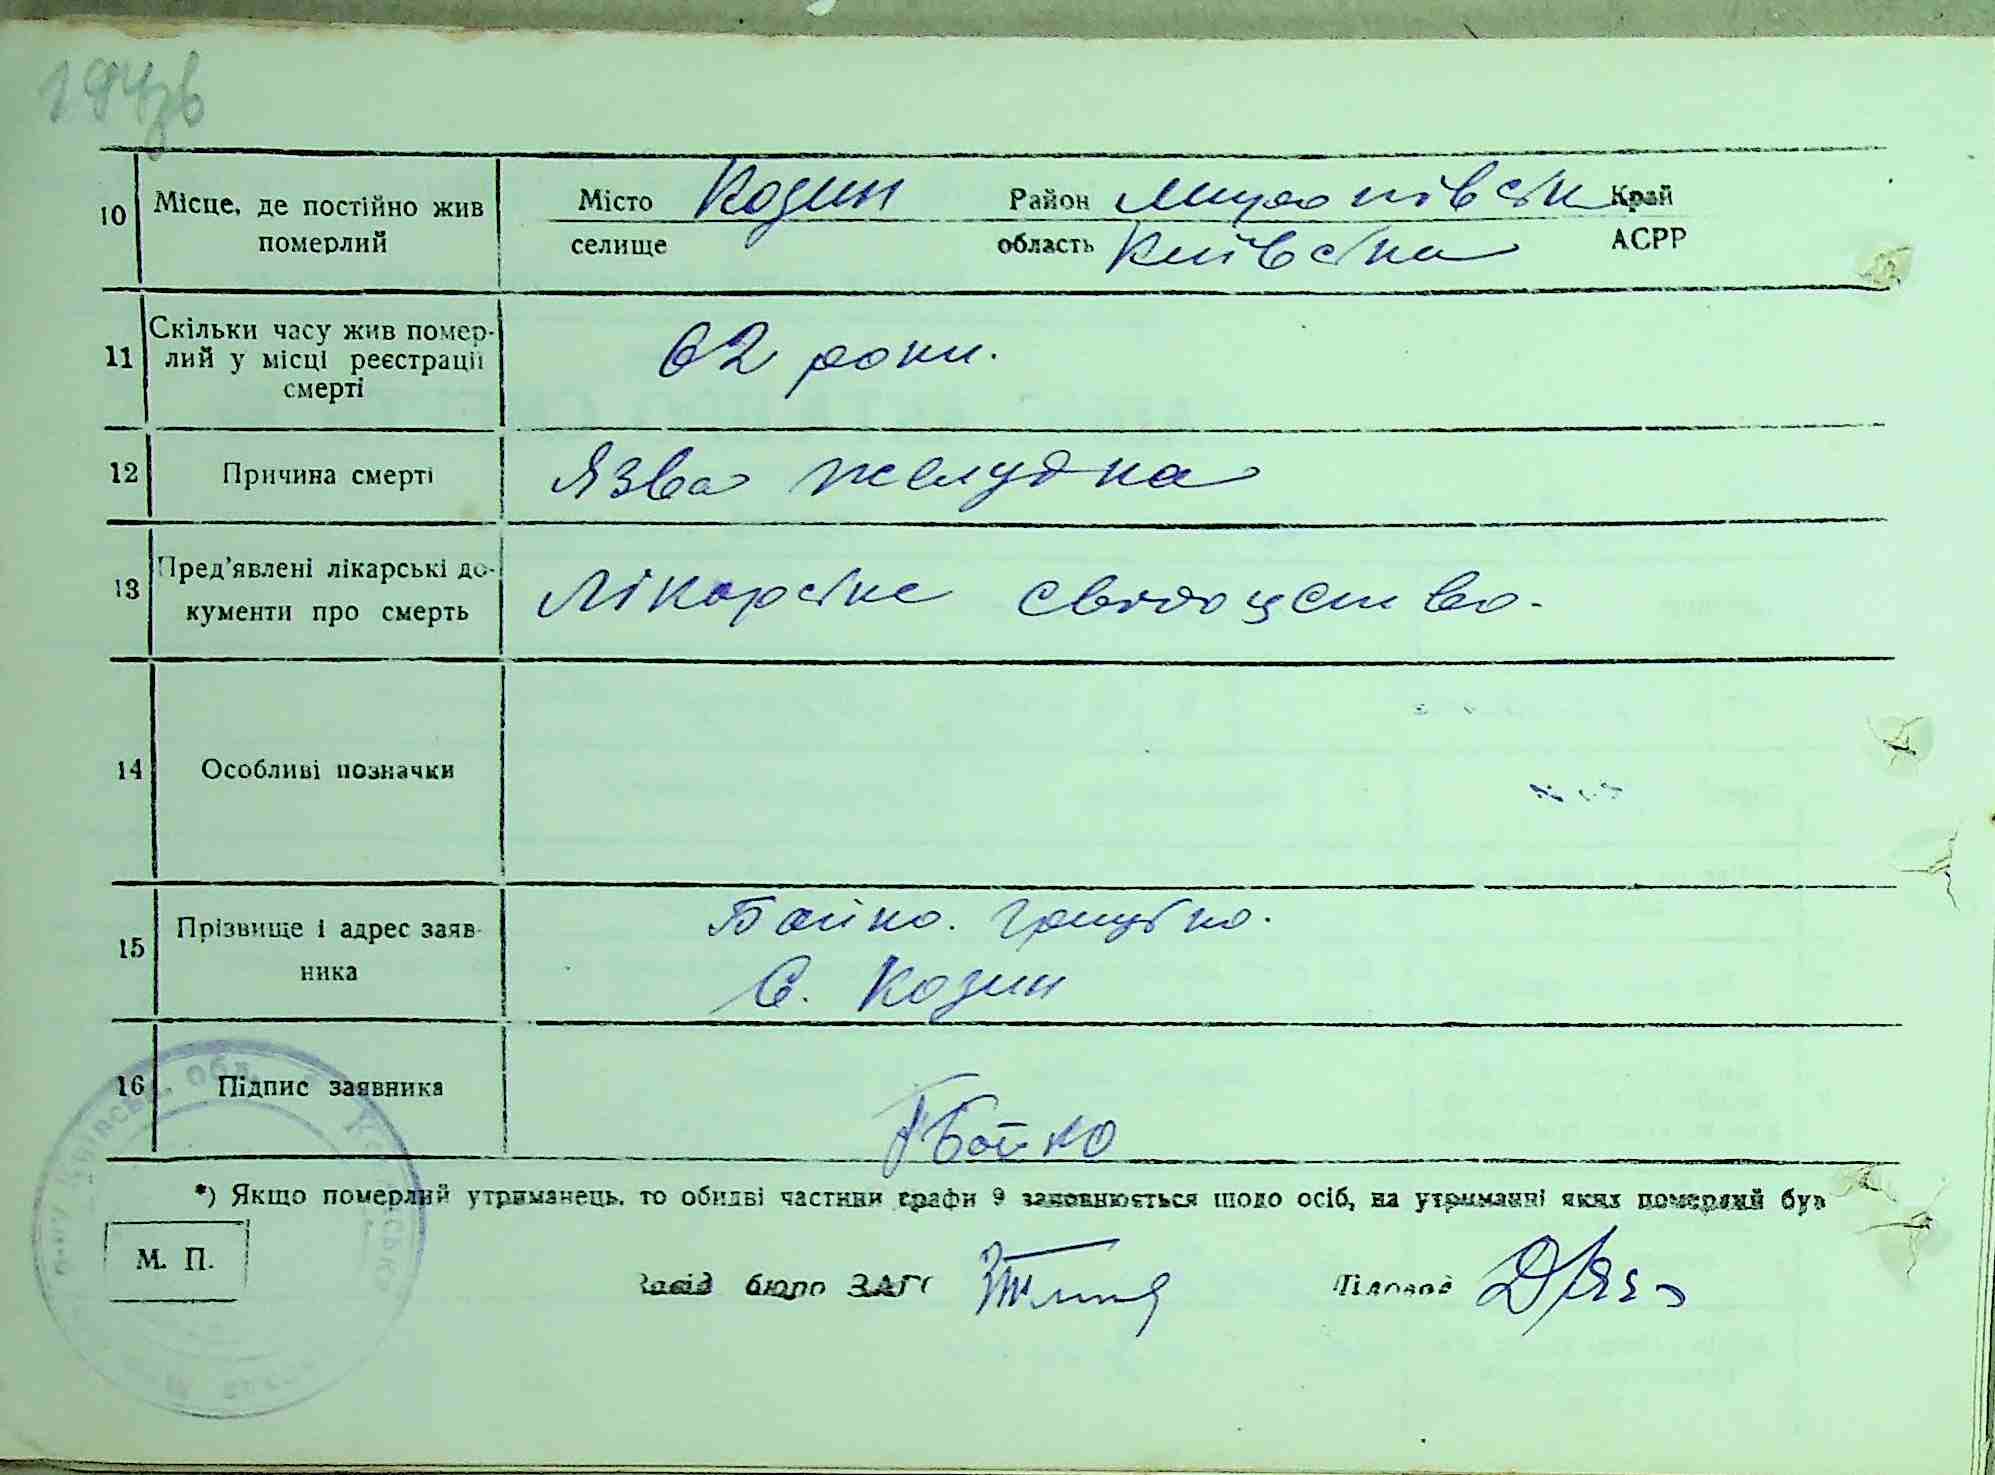 10 Місце, де постійно жив померлий Місто Козин Район Миронівськ Край
селище область Київська АСРР
11 Скільки часу жив помер-
лий у місці реєстрації
смерті 62 роки.
12 Причина смерті Язва желудка
13 Пред'явлені лікарські до-
кументи про смерть Лікарське свідоцтво.
14 Особливі позначки
15 Прізвище і адрес заяв-
ника Бойко.
С. Козин
16 Підпис заявника Бойко
*) Якщо померлий утриманець, то обидві частини графи 9 заповнюється щодо осіб, на утриманні яких померлий був
М. П.
Завід бюро ЗАГС Діловод